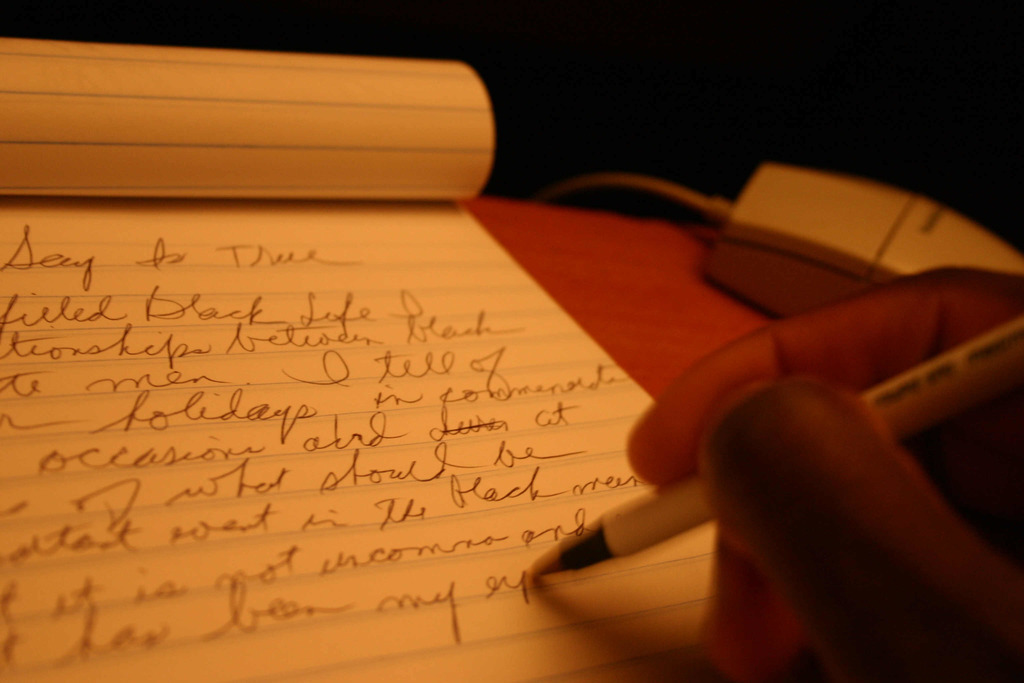 Say Is True
filled Black Life
tionships between black
te men. I tell of
holidays, in commemorati
occasions and at
of what should be
ortant event in the black men
it is not uncommon and
has been my ex